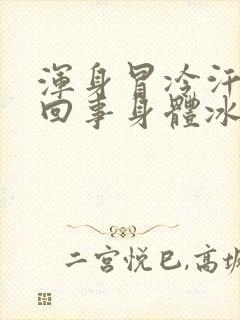 渾身冒冷汗
回事身體冰
二宫悦巳,高坂